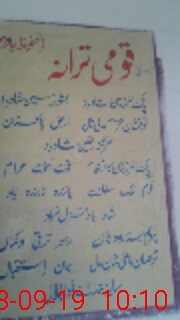 حفیظ
قومی ترانہ
پاک سرزمین شاد باد کشور حسین شاد باد
تو نشان عزم عالی شان ارض پاکستان
مرکز یقین شاد باد
پاک سرزمین کا نظام قوت اخوت عوام
قوم ملک سلطنت پائندہ تابندہ باد
شاد باد منزل مراد
پرچم ستارہ و ہلال رہبر ترقی و کمال
ترجمان ماضی شان حال جان استقبال
سایہ خدائے ذوالجلال
8-09-19 10:10